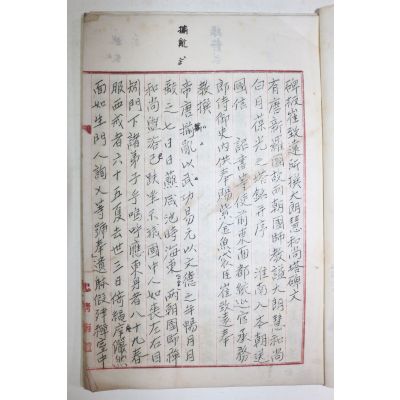 碑板崔致遠所撰大朗慧和尚塔碑文
有唐新羅國故兩朝國師敎諡大朗慧和尚
白月葆光之塔銘并序 淮南入本朝送
國信 詔書等使前東面都統巡官承務
郎侍御史內供奉賜紫金魚袋臣崔致遠奉
敎撰
帝唐揃亂以武功易元以文德之年暢月月
缺之七日日蘸咸池時海東 兩朝國師禪
和尚盥浴已趺坐示滅國中人如喪左右目
矧門下諸弟子乎嗚呼應東身者八十九春
服西戒者六十五夏去世三日倚繩座儼然
面如生門人詢乂等號奉遺身假隸禪室中